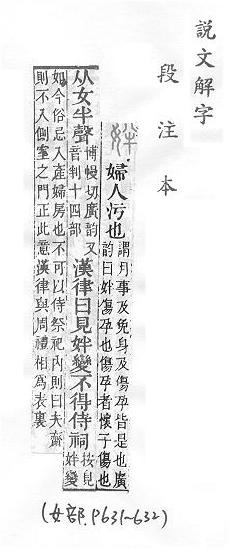 説文解字
段注本
姅 婦人污也 謂月事及免身及傷孕皆是也廣
韵曰姅傷孕也傷孕者懷子傷也
从女半聲 博幔切廣韵又
音判十四部
漢律曰見姅變不得侍祠 按見
姅變
如今俗忌入產婦房也不可以侍祭祀內則曰夫齋
則不入側室之門正此意漢律與周禮相爲表裏
(女部.P631~632)